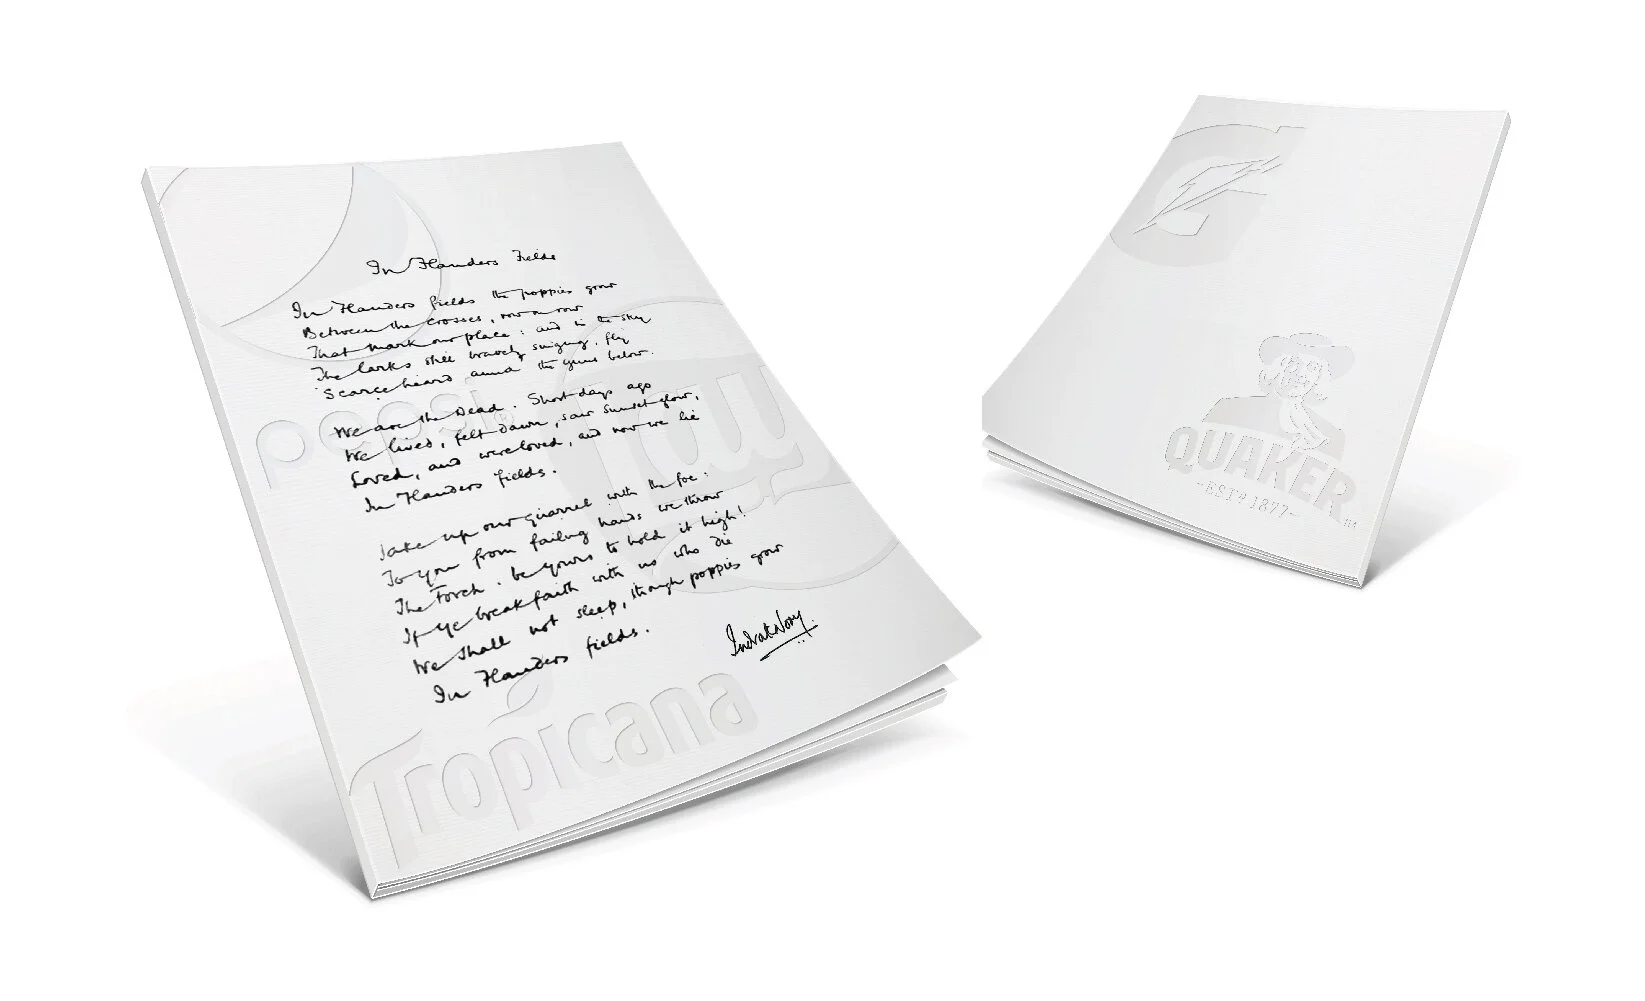 In Flanders Fields
In Flanders fields the poppies grow
Between the crosses, row on row
That mark our place: and in the sky
The larks still bravely singing, fly
Scarce heard amid the guns below.
We are the Dead. Short days ago
We lived, felt dawn, saw sunset glow,
Loved, and were loved, and now we lie
In Flanders fields.
Take up our quarrel with the foe:
To you from failing hands we throw
The torch. be yours to hold it high!
If ye break faith with us who die
We shall not sleep, though poppies grow
In Flanders fields.
pepsi
Lay's
Tropicana
G
QUAKER
-ESTD 1877-
TM